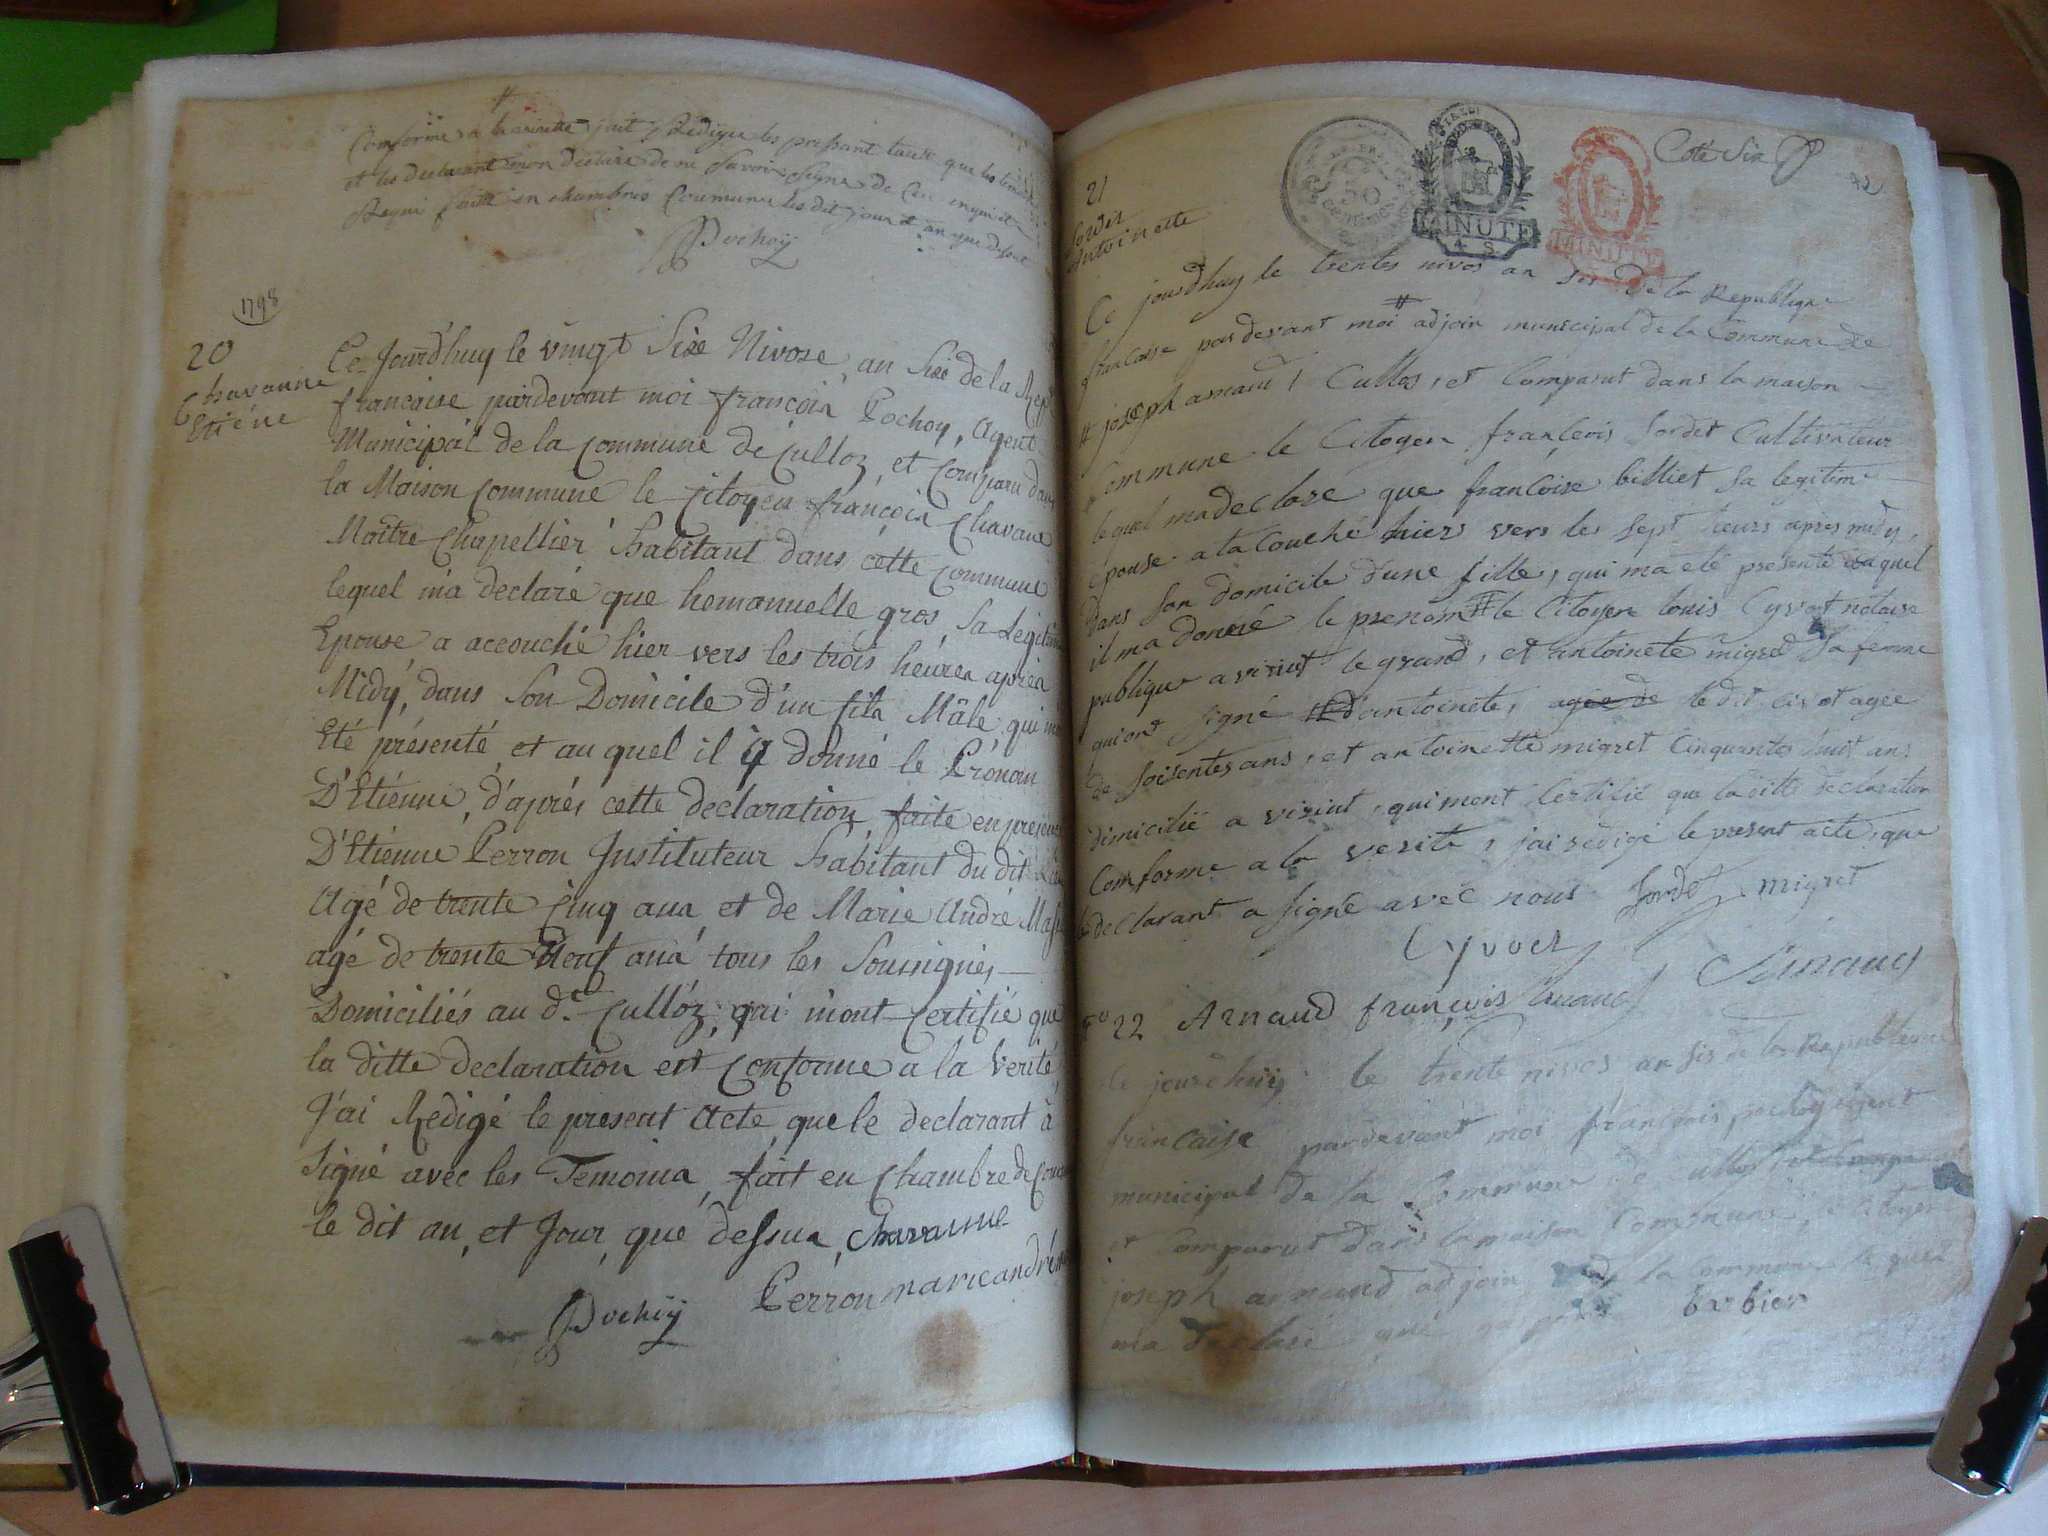 Conforme a la verité jait Rediger les pressant tacte que les
et les declarant mon declaire de ne Savoir Signe de Ceu
Requi fait en chambres Commune les dit jour et an que dessus
Pochoÿ
1798
20
Chavanne
Etiéne
Ce Jourd'huy le vingt Sixe Nivose, an Sixe de la Rep
francaise pardevant moi françois Pochoy, Agent
Municipal de la Commune de Culloz, et Comparu dans
la Maison Commune le Citoyen françois Chavane
Maitre Chapellier habitant dans cette Commune
lequel m'a declaré que hemanuelle gros, Sa Legitime
Epouse a accouché hier vers les trois heures après
Midy, dans Son Domicile d'un fils Mâle, qui m'a
Eté présenté et au quel il a donné le Prénom
D'Etiénne, d'après cette declaration, faite en presence
D'Etiénne Perron Instituteur habitant du dit
Agé de trente Cinq ans, et de Marie André
agé de trente Neuf ans tous les Soussignés
Domiciliés au d.t Cullóz, qui m'ont Certifié que
la ditte declaration est Conforme a la Verité
J'ai Redigé le present Acte que le declarant à
Signé avec les Temoins, fait en Chambre de
le dit an, et Jour, que dessus, Chavanne
Pochoÿ Perron marie andré
Coté Six
42
50
CENTIMES
MINUTE
4 S
MINUTE
21
Sordet
Antoinette
Ce jourdhuy le trentes nivos an sis De la Republique
francaise par devant moi # adjoin municipal de la Commune de
# joseph arnaud / Cullos, et Comparut dans la maison
Commune le Citoyen françois Sordet Cultivateur
lequel ma declare que francoise billiet Sa legitime
epouse a tacouché hiers vers les sept heurs apres midy,
dans son domicile dune fille, qui ma eté presente auquel
il ma donné le prenom # le Citoyen louis Cyvoct notaire
publique a viriut le grand, et antoinete migret Sa femme
qui ont signé # d'antoinete, agee de le dit Civot agee
de soisentes ans, et antoinette migret Cinquantes huit ans
dimicilié a viriut, qui mont Certifié que la ditte declaration
Comforme a la verite, jai redigé le present acte, que
le declarant a signé avec nous Sordet migret
Cyvoct Arnaud
N° 22 Arnaud françois
Ce jourdhuÿ le trente nivos an sis de la Republique
francaise pardevant moi françois pochoÿ agent
municipal De la Commune de Cullos, et Comparut
et Comparut dans la maison Commune, le Citoyen
joseph arnaud adjoin de la Commune le quel
ma declaré que barbier